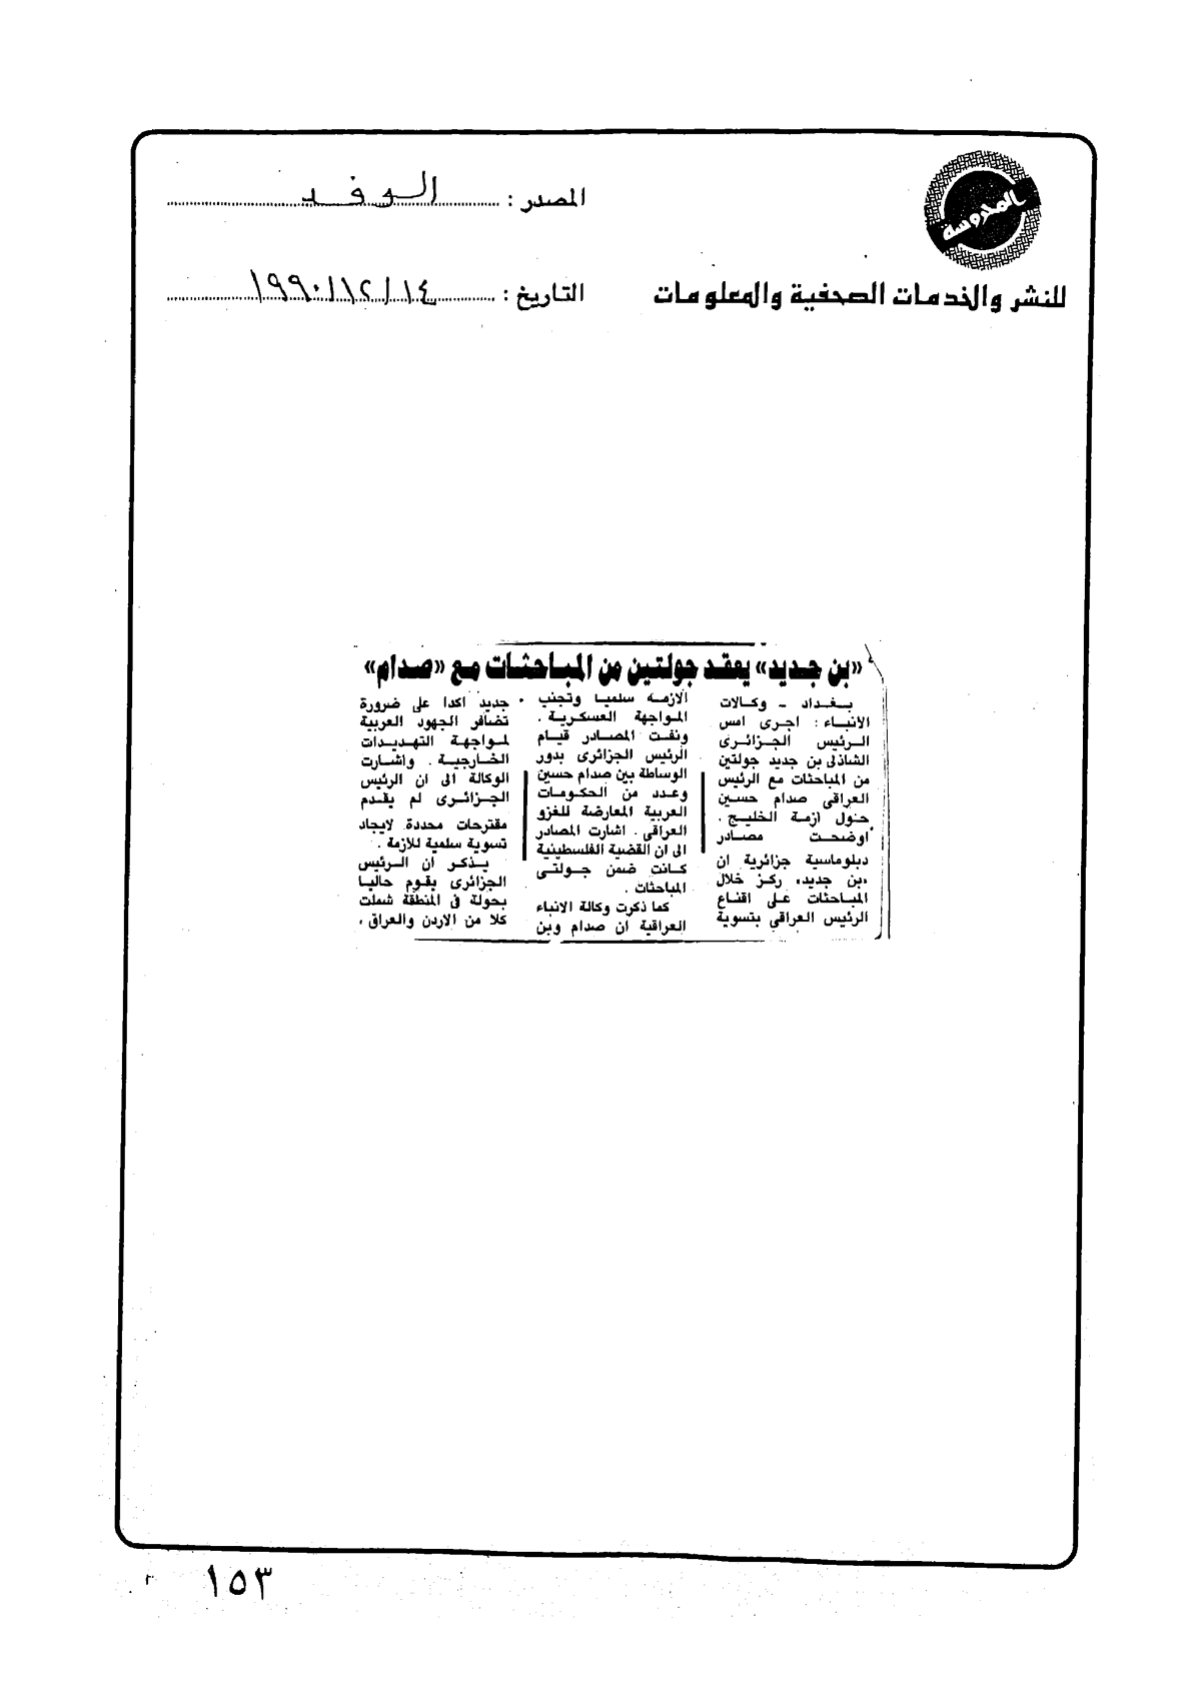 المحروسة
المصدر : الوفد
للنشر والخدمات الصحفية والمعلومات
التاريخ : ١٩٩٠/١٢/١٤
«بن جديد» يعقد جولتين من المباحثات مع «صدام»
بغداد - وكالات
الانباء : اجرى امس
الرئيس الجزائرى
الشاذلى بن جديد جولتين
من المباحثات مع الرئيس
العراقى صدام حسين
حول ازمة الخليج .
اوضحت مصادر
دبلوماسية جزائرية ان
«بن جديد» ركز خلال
المباحثات على اقناع
الرئيس العراقي بتسوية
الازمة سلميا وتجنب
المواجهة العسكرية .
ونفت المصادر قيام
الرئيس الجزائرى بدور
الوساطة بين صدام حسين
وعدد من الحكومات
العربية المعارضة للغزو
العراقى . اشارت المصادر
الى ان القضية الفلسطينية
كانت ضمن جولتى
المباحثات .
كما ذكرت وكالة الانباء
العراقية ان صدام وبن
جديد اكدا على ضرورة
تضافر الجهود العربية
لمواجهة التهديدات
الخارجية . واشارت
الوكالة الى ان الرئيس
الجزائرى لم يقدم
مقترحات محددة لايجاد
تسوية سلمية للازمة .
يذكر ان الرئيس
الجزائرى يقوم حاليا
بجولة فى المنطقة شملت
كلا من الاردن والعراق .
١٥٣